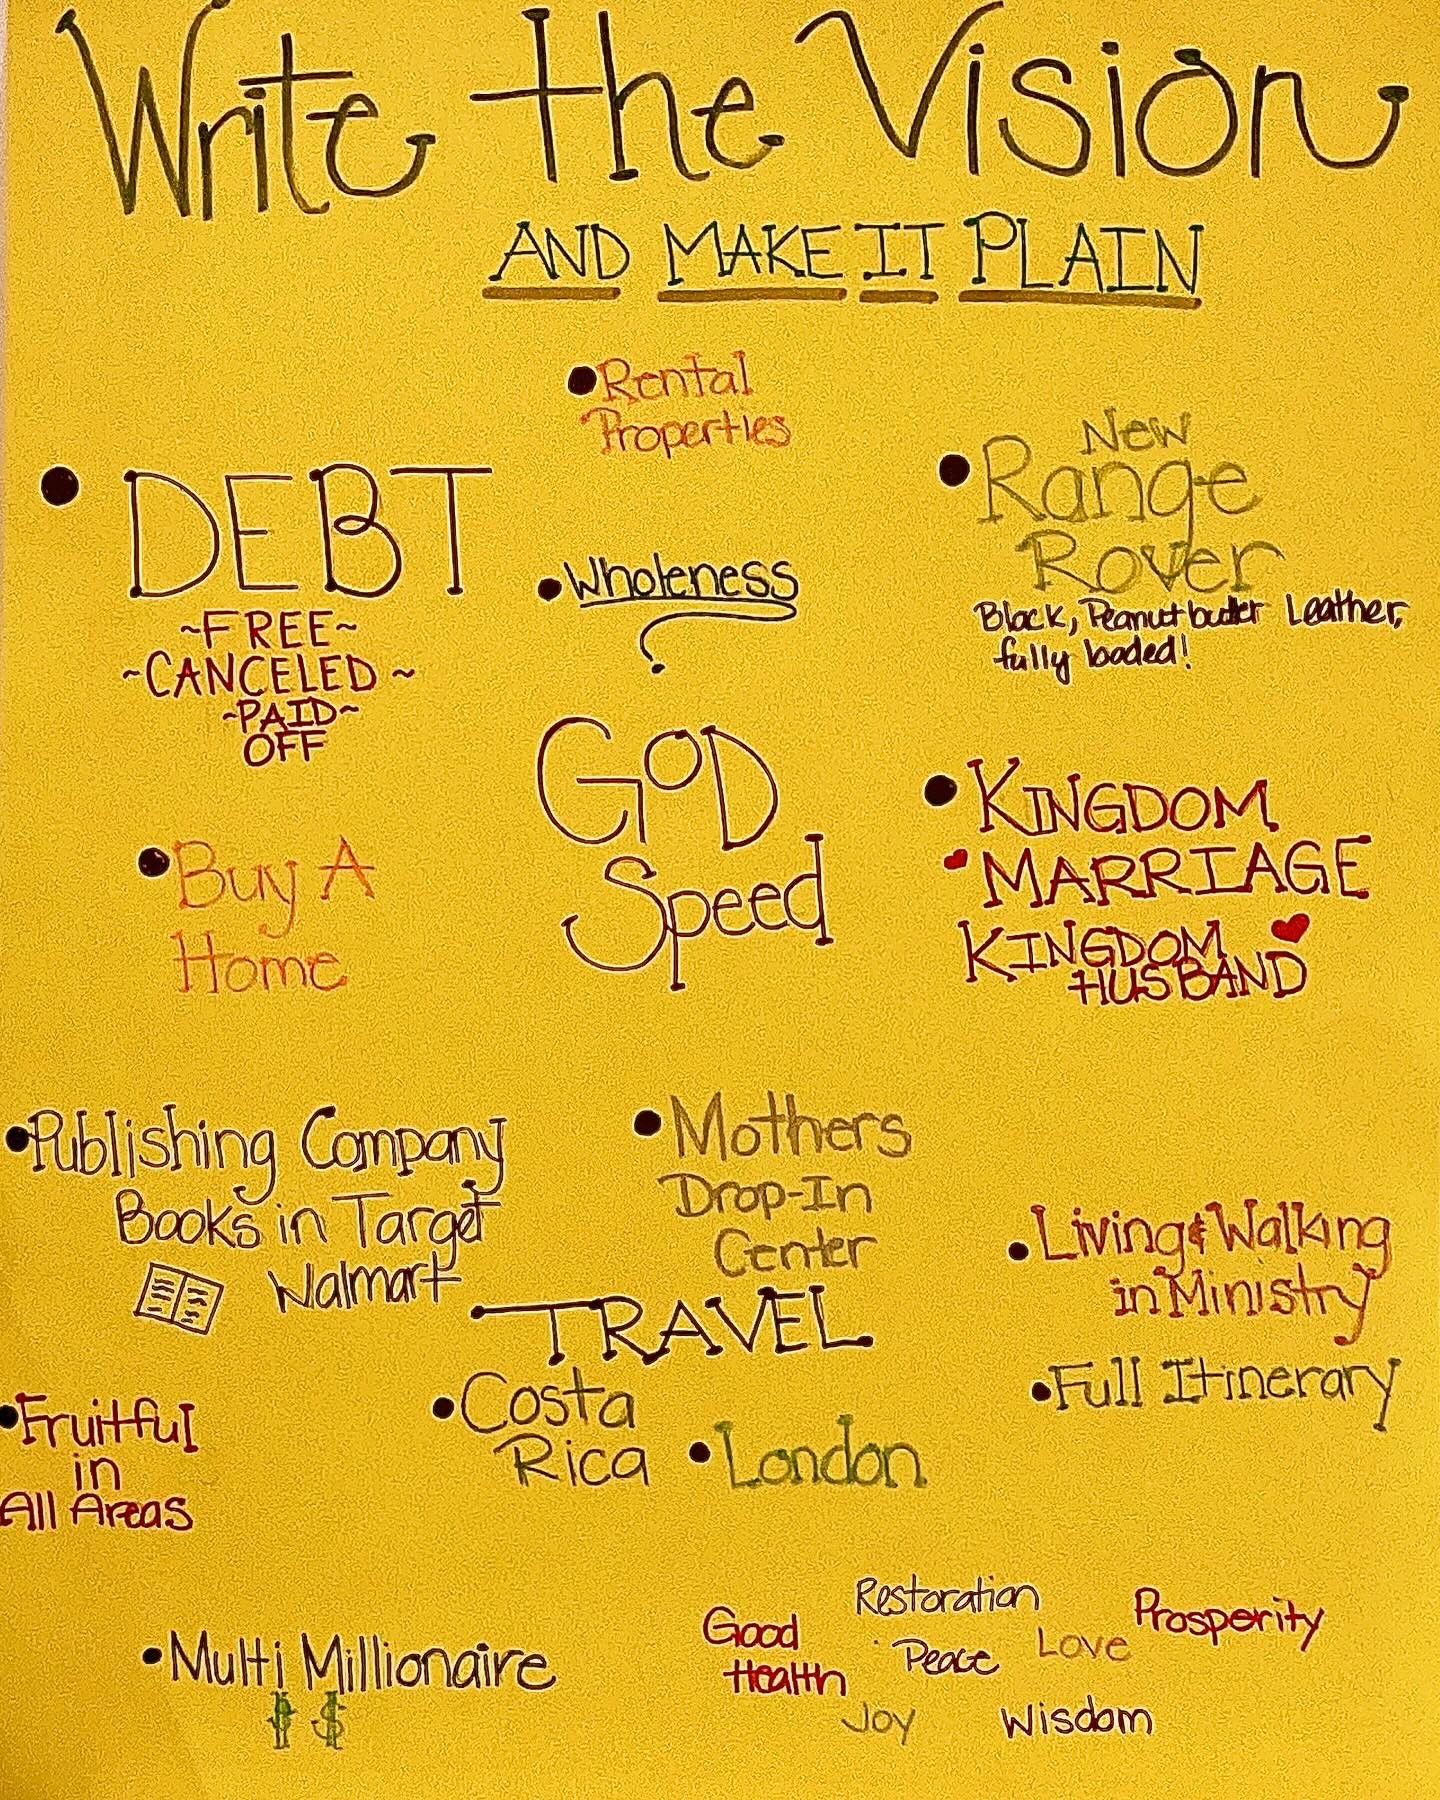 Write the Vision
AND MAKE IT PLAIN
•Rental
Properties
• DEBT
~FREE~
~CANCELED~
~PAID~
OFF
•Wholeness
New
•Range
Rover
Black, Peanutbutter Leather,
fully loaded!
GOD
Speed
•KINGDOM
MARRIAGE
KINGDOM
HUSBAND
•Buy A
Home
•Publishing Company
Books in Target
Walmart
•Mothers
Drop-In
Center
•Living & Walking
in Ministry
•Full Itinerary
TRAVEL
•Costa
Rica
•London
•Fruitful
in
All Areas
•Multi Millionaire
$ $
Restoration
Good
Health
Peace
Love
Prosperity
Joy
Wisdom